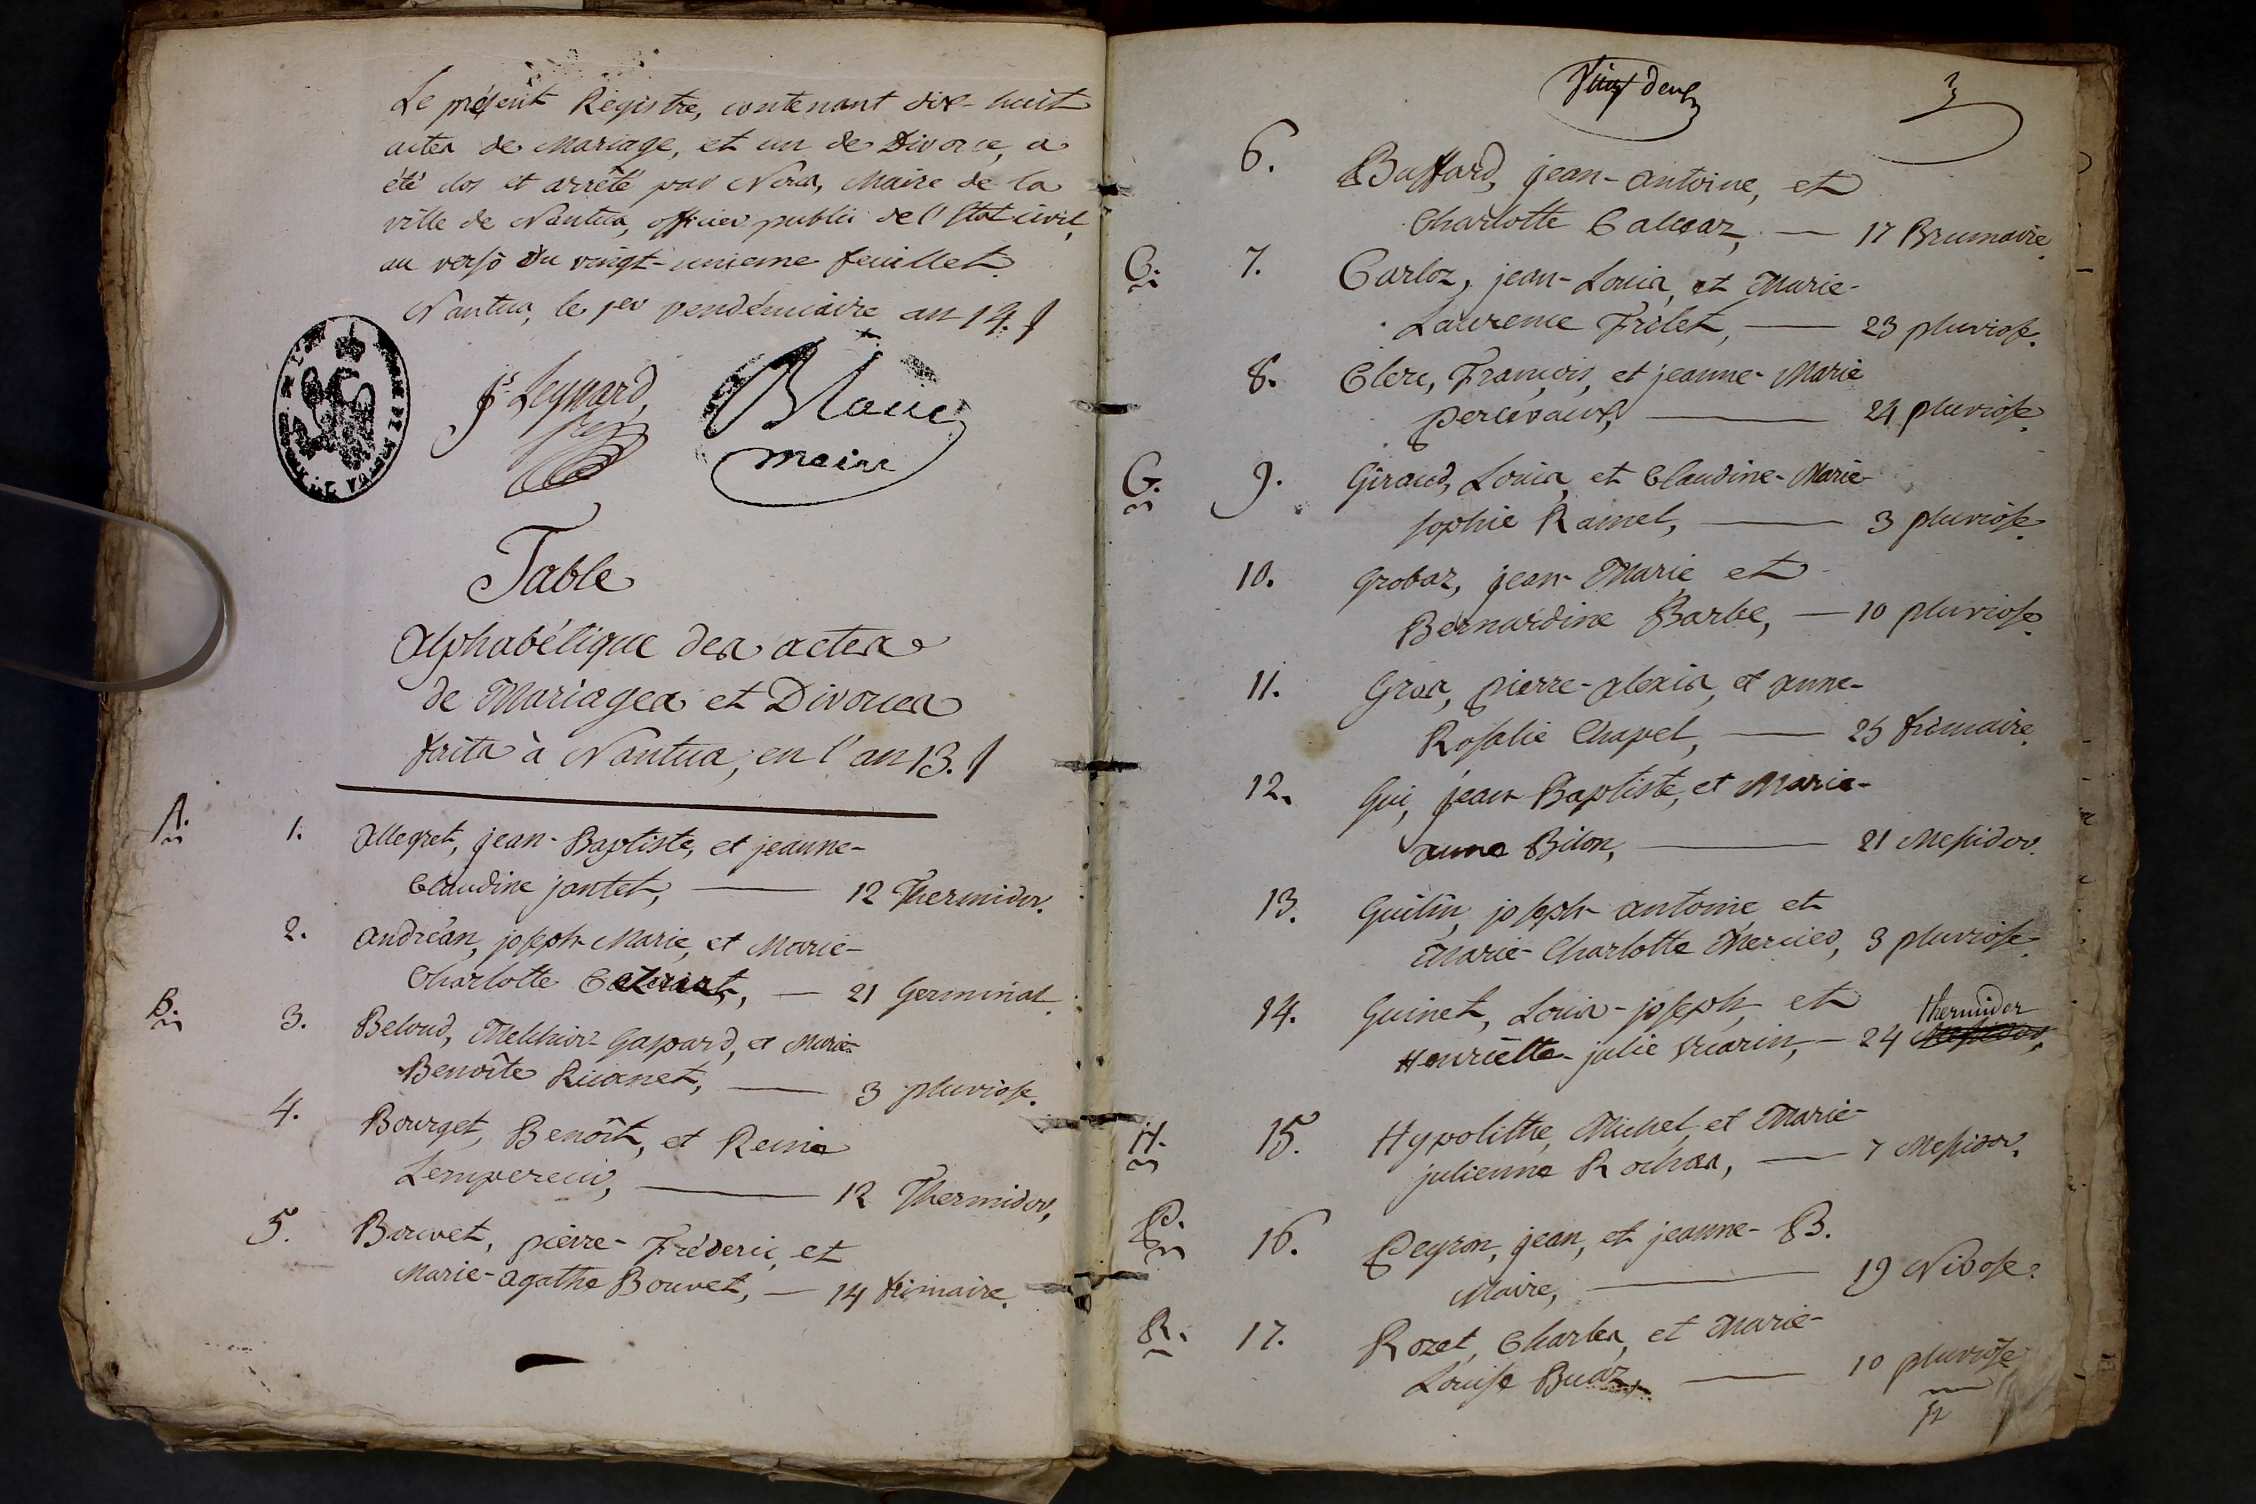 Le présent Registre, contenant dix-huit
actes de Mariage, et un de Divorce, a
été clos et arrêté par Nous, Maire de la
ville de Nantua, officier public de l'Etat civil,
au verso du vingt-unieme feuillet.
Nantua, le 1er vendémiaire an 14.
Blanc
maire
Table
alphabétique des actes
de Mariages et Divorces
faits à Nantua, en l'an 13.
A. 1. Allegret, jean-Baptiste, et jeanne-
Claudine jantet, — 12 Thermidor.
2. Andréan, joseph-Marie, et Marie-
Charlotte — 21 Germinal.
B. 3. Beloud, Melchior Gaspard, et Marie-
Benoîte Ricanet, — 3 pluviose.
4. Bourget, Benoît, et Reine
Lempereur, — 12 Thermidor,
5. Bouvet, pierre-Fréderic, et
Marie-Agathe Bouvet, — 14 frimaire.
Vingt deux
6. Buffard, jean-antoine, et
Charlotte — 17 Brumaire.
C. 7. Carloz, jean-Louis, et Marie-
Laurence Frilet, — 23 pluviose.
8. Clerc, François, et jeanne-Marie
percevaux, — 24 pluviose.
G. 9. Giraud, Louis, et Claudine-Marie
sophie Ramel, — 3 pluviose.
10. Grobaz, jean-Marie et
Bernardine Barbe, — 10 pluviose.
11. Gros, pierre-alexis, et anne-
Rosalie Chapel, — 25 frimaire.
12. Gui, jean Baptiste, et Marie-
anne Bilon, — 21 Messidor.
13. Guitin, joseph antoine et
Marie-Charlotte Mercier, 3 pluviose.
14. Guinet, Louis-joseph, et thermidor
Henriette-julie vuarin, — 24 Messidor,
H. 15. Hypolithe, Michel, et Marie-
julienne Rochas, — 7 Messidor.
P. 16. Peyron, jean, et jeanne-B.
Maire, — 19 Nivose.
R. 17. Rozet, Charles, et Marie-
Louise Buaz, — 10 pluviose